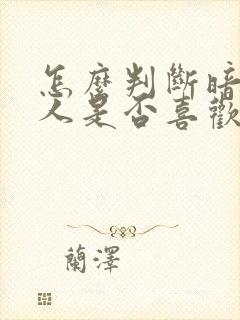 怎麼判斷暗
人是否喜歡
蘭澤